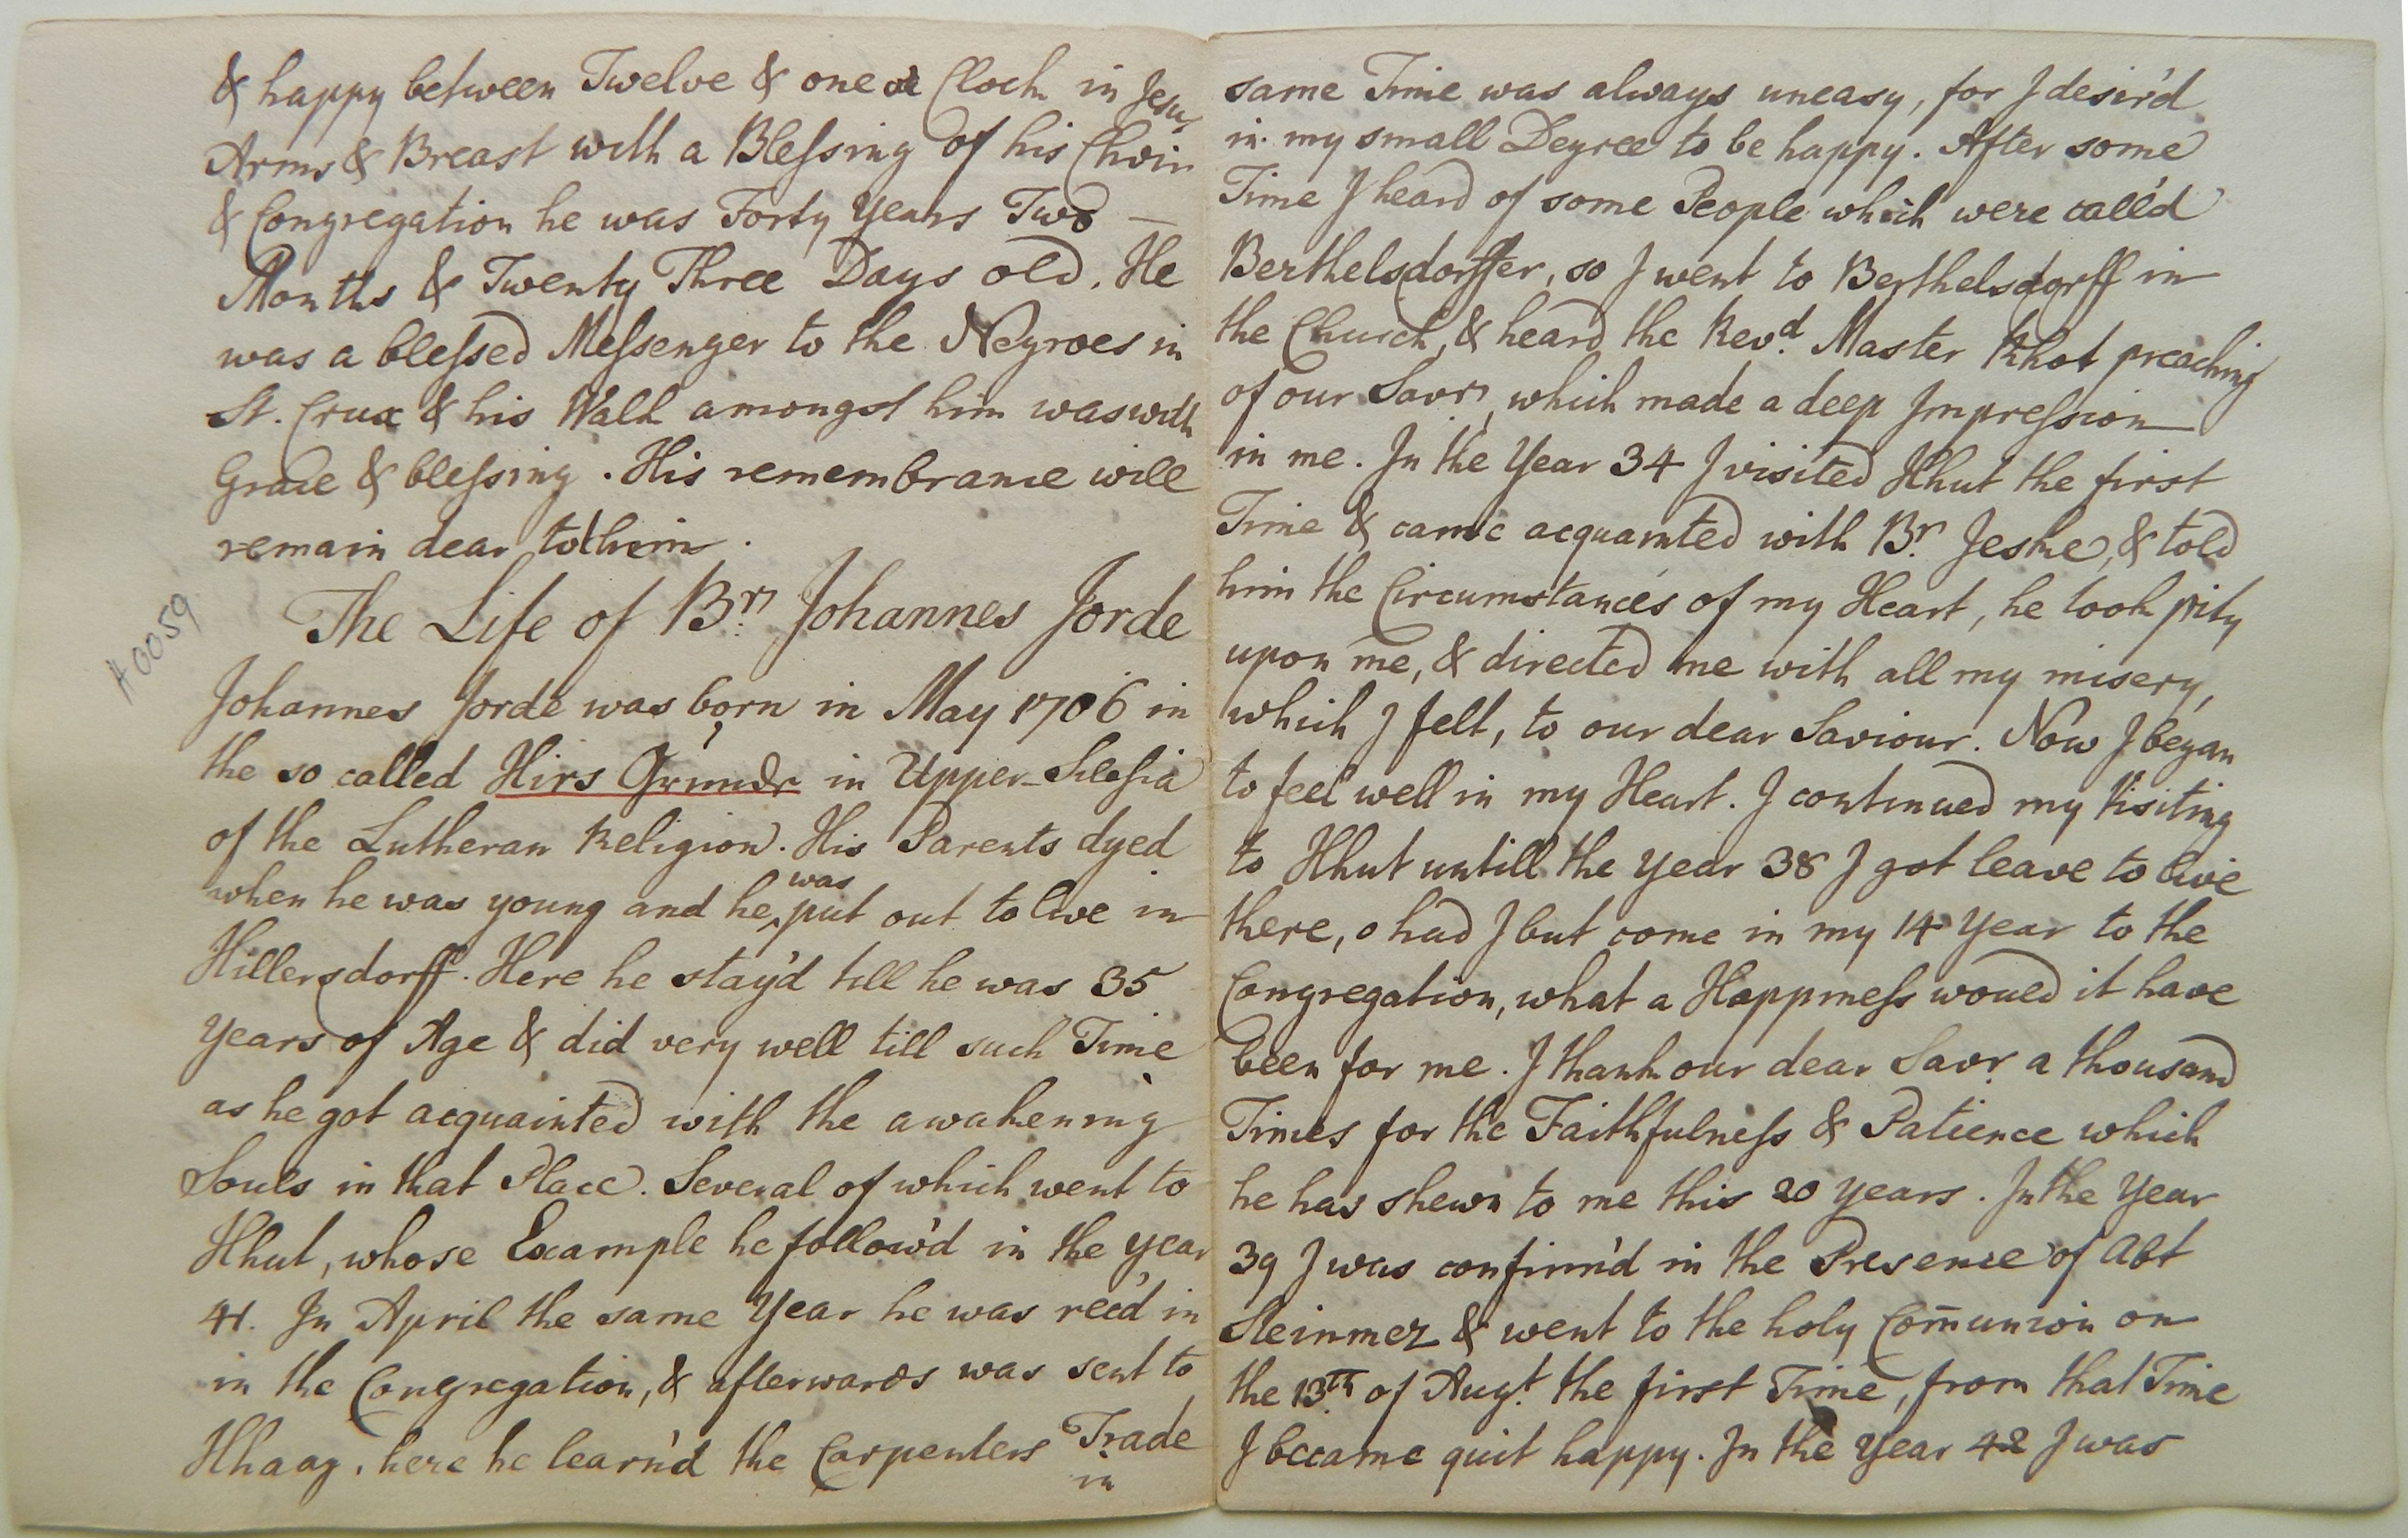 & happy between Twelve & one Clock in Jesus
Arms & Breast with a Blessing of his Choir
& Congregation he was Forty Years Two —
Months & Twenty Three Days old. He
was a blessed Messenger to the Negroes in
St. Crux & his Walk amongst him was with
Grace & blessing. His remembrance will
remain dear to him.
The Life of Br. Johannes Jorde
Johannes Jorde was born in May 1706 in
the so called Hirs Grunde in Upper-Silesia
of the Lutheran Religion. His Parents dyed
when he was young and he was put out to live in
Hillersdorff. Here he stay'd till he was 35
Years of Age & did very well till such Time
as he got acquainted with the awakening
Souls in that Place. Several of which went to
Hhut, whose Example he follow'd in the year
41. In April the same Year he was recd in
in the Congregation, & afterwards was sent to
Hhaag, here he learn'd the Carpenters Trade
in
A0059
same Time was always uneasy, for I desir'd
in my small Degree to be happy. After some
Time I heard of some People which were call'd
Berthelsdorffer, so I went to Berthelsdorff in
the Church, & heard the Revd. Master Rhot preaching
of our Savr, which made a deep Impression
in me. In the Year 34 I visited Hhut the first
Time & came acquainted with Br. Jeske, & told
him the Circumstances of my Heart, he took pity
upon me, & directed me with all my misery,
which I felt, to our dear Saviour. Now I began
to feel well in my Heart. I continued my Visiting
to Hhut untill the Year 38 I got leave to live
there, o had I but come in my 14 Year to the
Congregation, what a Happiness woued it have
been for me. I thank our dear Savr. a thousand
Times for the Faithfulness & Patience which
he has shewn to me this 20 Years. In the Year
39 I was confirm'd in the Presence of Abt
Steinmez & went to the holy Com̄union on
the 13th of Augt. the first Time, from that Time
I became quit happy. In the Year 42 I was